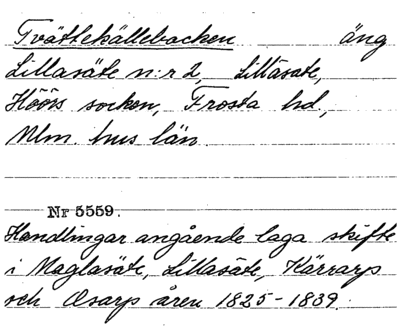 Tvättekällebacken äng
Lillasäte n:r 2, Lillasäte,
Höörs socken, Frosta hd,
Mlm. hus län.
Nr 5559.
Handlingar angående laga skifte
i Maglasäte, Lillasäte, Kärrarp
och Osarp åren 1825-1839.